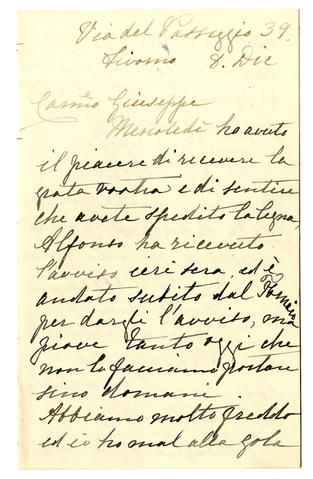 Via del Passeggio 39.
Livorno 8. Dic
Carmo Giuseppe
Mercoledì ho avuto
il piacere di ricevere la
grata vostra e di sentire
che avete spedito la legna,
Alfonso ha ricevuto
l'avviso ieri sera, ed è
andato subito dal
per dargli l'avviso, ma
piove tanto oggi che
non lo facciamo portare
sino domani.
Abbiamo molto freddo
ed io ho mal alla gola